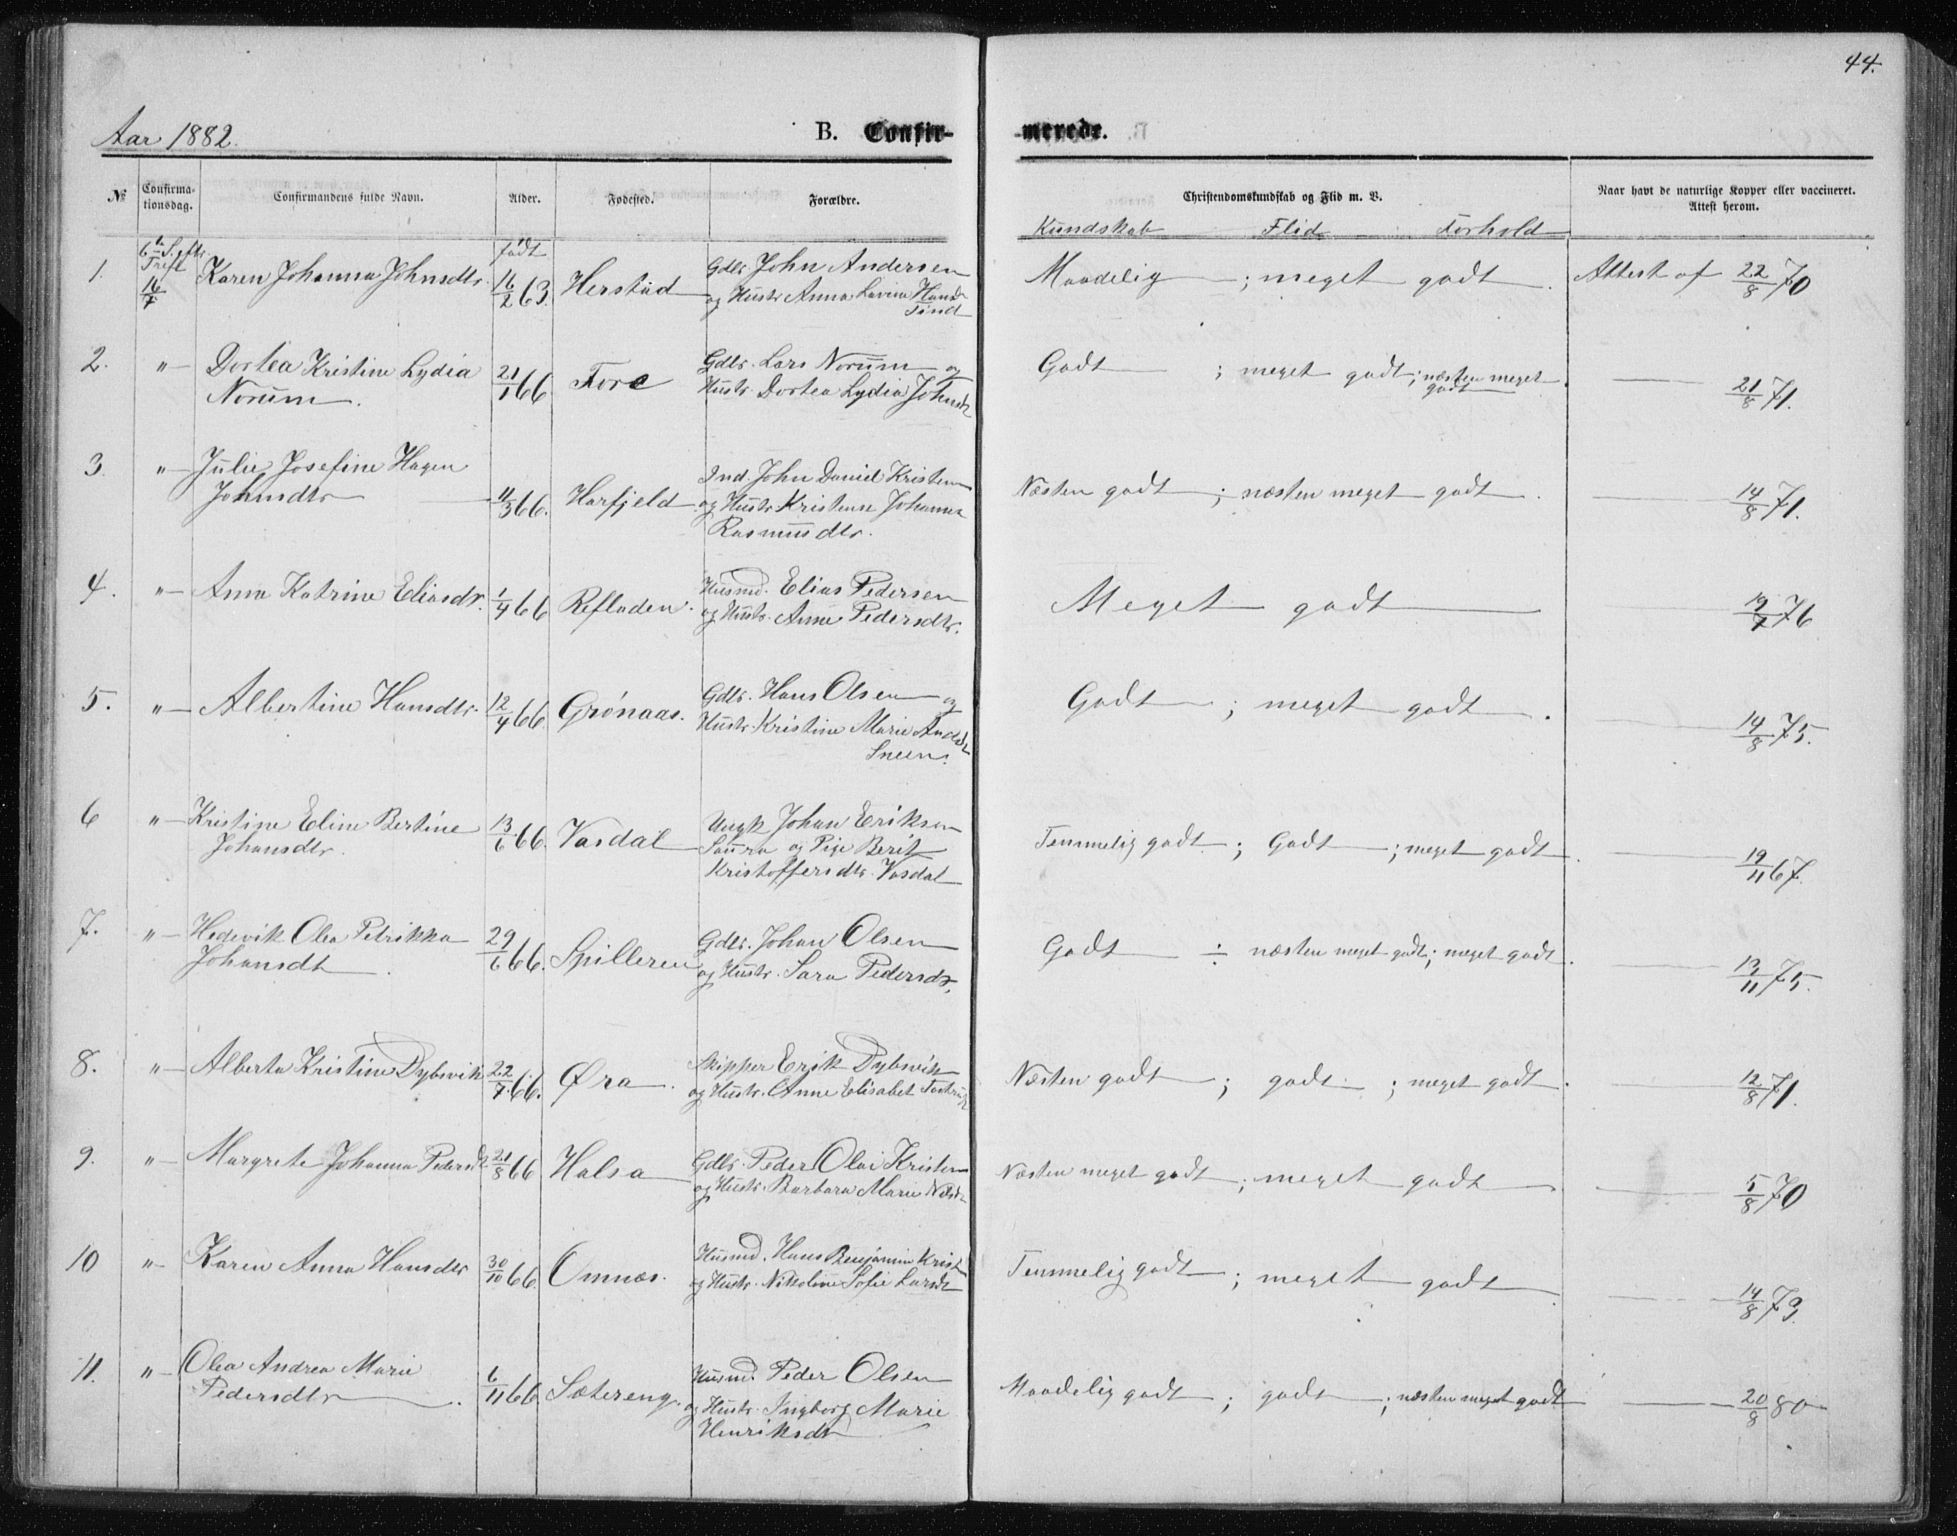 44.
Aar 1882.
B. Confir-
merede.
№
Confirma-
tionsdag.
Confirmandens fulde Navn.
Alder.
Fødested.
Forældre.
Christendomskundskab og Flid m. V.
Kundskab Flid Forhold
Naar havt de naturlige Kopper eller vaccineret.
Attest herom.
født
1. 16/7 Karen Johanna Johnsdtr. 16/2 63. Herstad Gdbr. John Andersen
og Hustr. Anna Lavina Hansd
Maadelig ; meget godt. Attest af 22/8 70
2. " Dortea Kristine Lydia
Norum. 21/1 66 Fore Gdbr. Lars Norum og
Hustr. Dortea Lydia Johnsd
Godt ; meget godt ; næsten meget
godt 21/8 71.
3. " Julie Josefine Hagen
Johnsdtr 11/3 66. Harfjeld Ind. John Daniel Kristens
og Hustr. Kristense Johanna
Rasmusdtr.
Næsten godt ; næsten meget godt. 14/8 71.
4. " Anna Katrine Eliasdr. 1/4 66 Refladen. Husmd. Elias Pedersen
og Hustr. Anne Pedersdtr.
Meget godt 19/7 76
5. " Albertine Hansdtr. 12/4 66. Grønaas. Gdbr. Hans Olsen og
Hustr. Kristine Marie Andsd
Sneen.
Godt ; meget godt. 14/8 75.
6 " Kristine Eline Bertine
Johansdtr. 13/6 66. Vasdal Ungk. Johan Eriksen
Saura og Pige Berit
Kristoffersdtr. Vasdal
Temmelig godt ; Godt ; meget godt. 19/11 67.
7. " Hedevik Olea Petrikka
Johansdt. 29/6 66. Spilleren Gdbr. Johan Olsen
og Hustr. Sara Pedersdr.
Godt ; næsten meget godt ; meget godt. 13/11 75.
8. " Alberta Kristine Dybvik 22/7 66. Øra. Skipper Erik Dybvik
og Hustr. Anne Elisabet
Næsten godt ; godt ; meget godt. 12/8 71.
9. " Margrete Johanna Pedersd 21/8 66 Halsa Gdbr. Peder Olai Kristens
og Hustr. Barbara Marie Nilsd
Næsten meget godt ; meget godt 5/8 70
10 " Karen Anna Hansdtr 30/10 66. Omnæs. Husmd. Hans Benjamin Krist
og Hustr. Nikoline Sofie Larsdt
Temmelig godt ; meget godt. 14/8 73.
11. " Olea Andrea Marie
Pedersdtr. 6/11 66 Sætereng. Husmd. Peder Olsen
og Hustr. Ingborg Marie
Henriksdt
Maadelig godt ; godt ; næsten meget godt 20/8 80